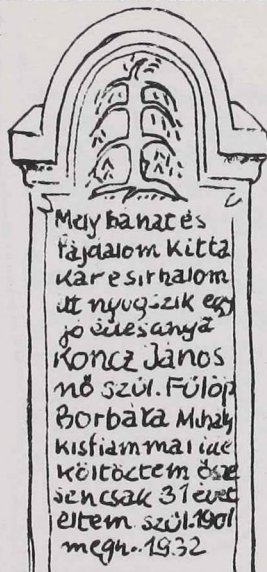 Mély bánat és
fájdalom Kitta
Kar e sirhalom
itt nyugszik egy
jó édesanya
Koncz János
nő szül. Fülöp
Borbára Mihály
kisfiammal ide
költöctem össe
sencsak 31 évet
éltem szül. 1901
megh. 1932